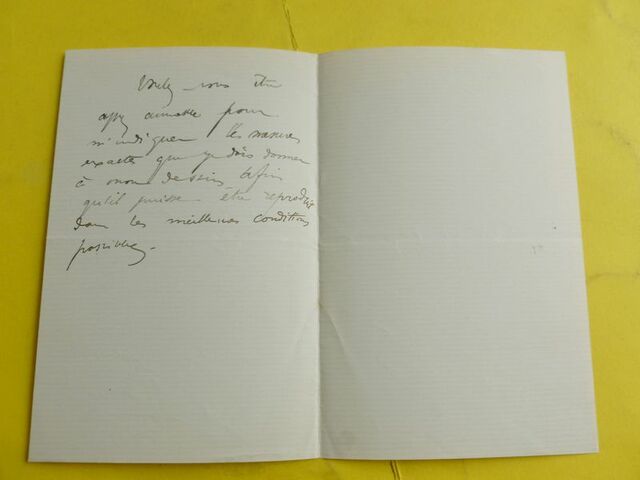 Voulez vous être
assez aimable pour
m'indiquer les mesures
exactes que je dois donner
à mon dessin afin
qu'il puisse être reproduit
dans les meilleures conditions
possibles.